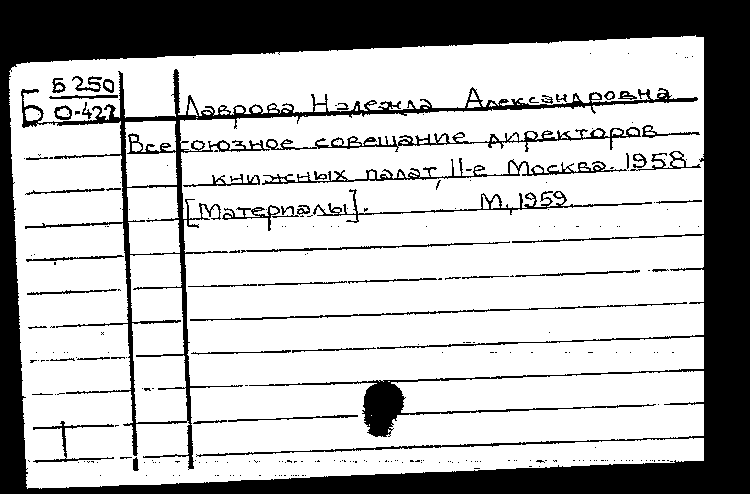 Б Б 250
О-422
Лаврова, Надежда Александровна
Всесоюзное совещание директоров
книжных палат, II-е Москва. 1958.
[Материалы]. М., 1959